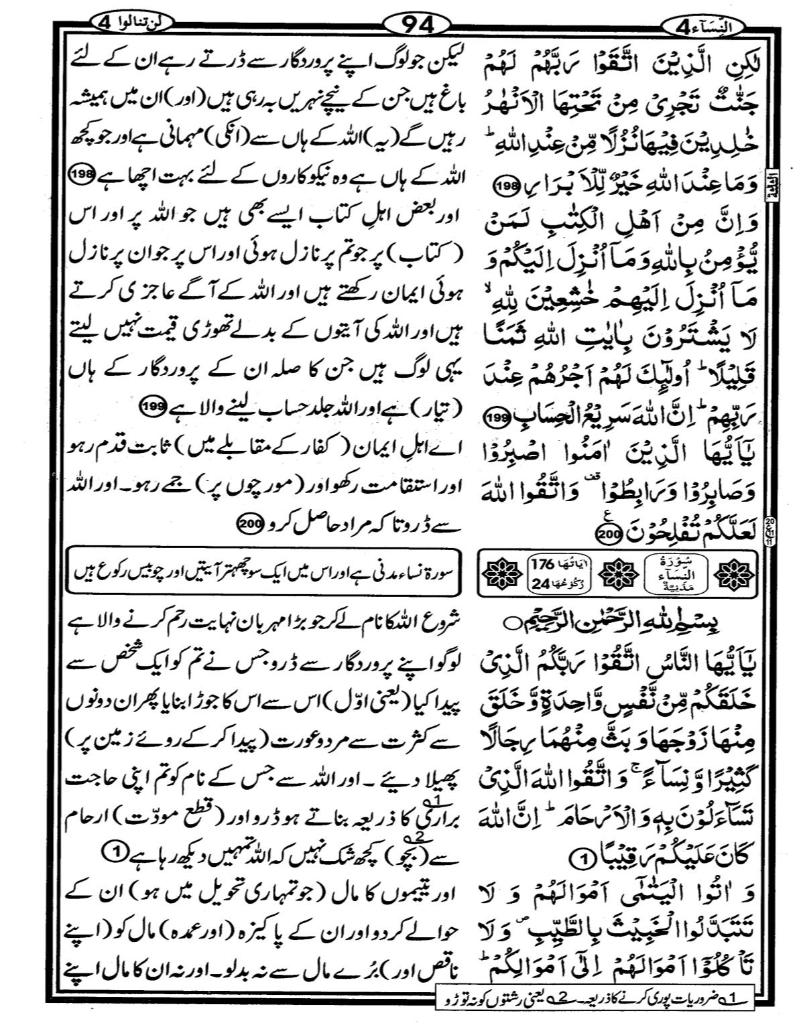 النسآء ٤
94
لن تنالوا 4
لٰكِنِ الَّذِيْنَ اتَّقَوْا رَبَّهُمْ لَهُمْ
جَنّٰتٌ تَجْرِيْ مِنْ تَحْتِهَا الْاَنْهٰرُ
خٰلِدِيْنَ فِيْهَا نُزُلًا مِّنْ عِنْدِ اللهِ ؕ
وَمَا عِنْدَ اللهِ خَيْرٌ لِّلْاَبْرَارِ 198
وَاِنَّ مِنْ اَهْلِ الْكِتٰبِ لَمَنْ
يُّؤْمِنُ بِاللهِ وَمَآ اُنْزِلَ اِلَيْكُمْ وَ
مَآ اُنْزِلَ اِلَيْهِمْ خٰشِعِيْنَ لِلهِ ۙ
لَا يَشْتَرُوْنَ بِاٰيٰتِ اللهِ ثَمَنًا
قَلِيْلًا ؕ اُولٰٓئِكَ لَهُمْ اَجْرُهُمْ عِنْدَ
رَبِّهِمْ ؕ اِنَّ اللهَ سَرِيْعُ الْحِسَابِ 199
يٰٓاَيُّهَا الَّذِيْنَ اٰمَنُوا اصْبِرُوْا
وَصَابِرُوْا وَرَابِطُوْا ۫ وَاتَّقُوا اللهَ
لَعَلَّكُمْ تُفْلِحُوْنَ 200
لیکن جو لوگ اپنے پروردگار سے ڈرتے رہے ان کے لئے
باغ ہیں جن کے نیچے نہریں بہہ رہی ہیں (اور) ان میں ہمیشہ
رہیں گے (یہ) اللہ کے ہاں سے (انکی) مہمانی ہے اور جو کچھ
اللہ کے ہاں ہے وہ نیکو کاروں کے لئے بہت اچھا ہے 198
اور بعض اہل کتاب ایسے بھی ہیں جو اللہ پر اور اس
(کتاب) پر جو تم پر نازل ہوئی اور اس پر جو ان پر نازل
ہوئی ایمان رکھتے ہیں اور اللہ کے آگے عاجزی کرتے
ہیں اور اللہ کی آیتوں کے بدلے تھوڑی قیمت نہیں لیتے
یہی لوگ ہیں جن کا صلہ ان کے پروردگار کے ہاں
(تیار) ہے اور اللہ جلد حساب لینے والا ہے 199
اے اہل ایمان (کفار کے مقابلے میں) ثابت قدم رہو
اور استقامت رکھو اور (مورچوں پر) جمے رہو۔ اور اللہ
سے ڈرو تا کہ مراد حاصل کرو 200
سُوْرَةُ النِّسَآءِ مَدَنِيَّةٌ
اٰيَاتُهَا 176
رُكُوْعُهَا 24
سورۃ نساء مدنی ہے اور اس میں ایک سو چھہتر آیتیں اور چوبیس رکوع ہیں
بِسْمِ اللهِ الرَّحْمٰنِ الرَّحِيْمِ
يٰٓاَيُّهَا النَّاسُ اتَّقُوْا رَبَّكُمُ الَّذِيْ
خَلَقَكُمْ مِّنْ نَّفْسٍ وَّاحِدَةٍ وَّخَلَقَ
مِنْهَا زَوْجَهَا وَبَثَّ مِنْهُمَا رِجَالًا
كَثِيْرًا وَّنِسَآءً ۚ وَاتَّقُوا اللهَ الَّذِيْ
تَسَآءَلُوْنَ بِهٖ وَالْاَرْحَامَ ؕ اِنَّ اللهَ
كَانَ عَلَيْكُمْ رَقِيْبًا 1
وَ اٰتُوا الْيَتٰمٰٓى اَمْوَالَهُمْ وَ لَا
تَتَبَدَّلُوا الْخَبِيْثَ بِالطَّيِّبِ ۪ وَلَا
تَاْكُلُوْٓا اَمْوَالَهُمْ اِلٰٓى اَمْوَالِكُمْ ؕ
شروع اللہ کا نام لے کر جو بڑا مہربان نہایت رحم کرنے والا ہے
لوگو اپنے پروردگار سے ڈرو جس نے تم کو ایک شخص سے
پیدا کیا (یعنی اوّل) اس سے اس کا جوڑا بنایا پھر ان دونوں
سے کثرت سے مرد و عورت (پیدا کر کے روئے زمین پر)
پھیلا دیئے۔ اور اللہ سے جس کے نام کو تم اپنی حاجت
براری 1؎ کا ذریعہ بناتے ہو ڈرو اور (قطع مودّت) ارحام
سے (بچو) 2؎ کچھ شک نہیں کہ اللہ تمہیں دیکھ رہا ہے 1
اور یتیموں کا مال (جو تمہاری تحویل میں ہو) ان کے
حوالے کردو اور ان کے پاکیزہ (اور عمدہ) مال کو (اپنے
ناقص اور) بُرے مال سے نہ بدلو۔ اور نہ ان کا مال اپنے
1؎ ضروریات پوری کرنے کا ذریعہ۔ 2؎ یعنی رشتوں کو نہ توڑو